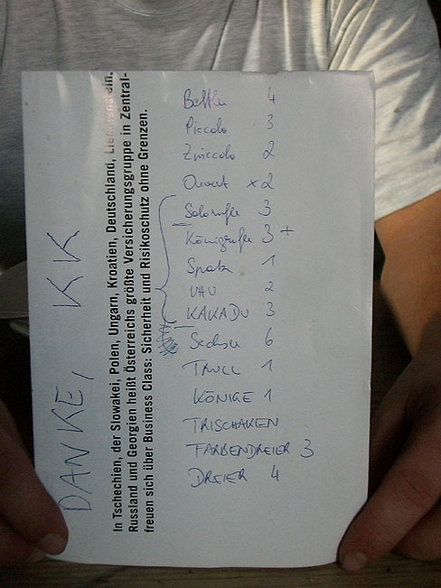 Bettler 4
Piccolo 3
Zwiccolo 2
Ouvert x2
Solorufer 3
Königrufer 3+
Spatz 1
UHU 2
KAKADU 3
Sechser 6
TRULL 1
KÖNIGE 1
TRISCHAKEN
FARBENDREIER 3
DREIER 4
In Tschechien, der Slowakei, Polen, Ungarn, Kroatien, Deutschland, Liechtenstein,
Russland und Georgien heißt Österreichs größte Versicherungsgruppe in Zentral-
freuen sich über Business Class: Sicherheit und Risikoschutz ohne Grenzen.
DANKE, KK